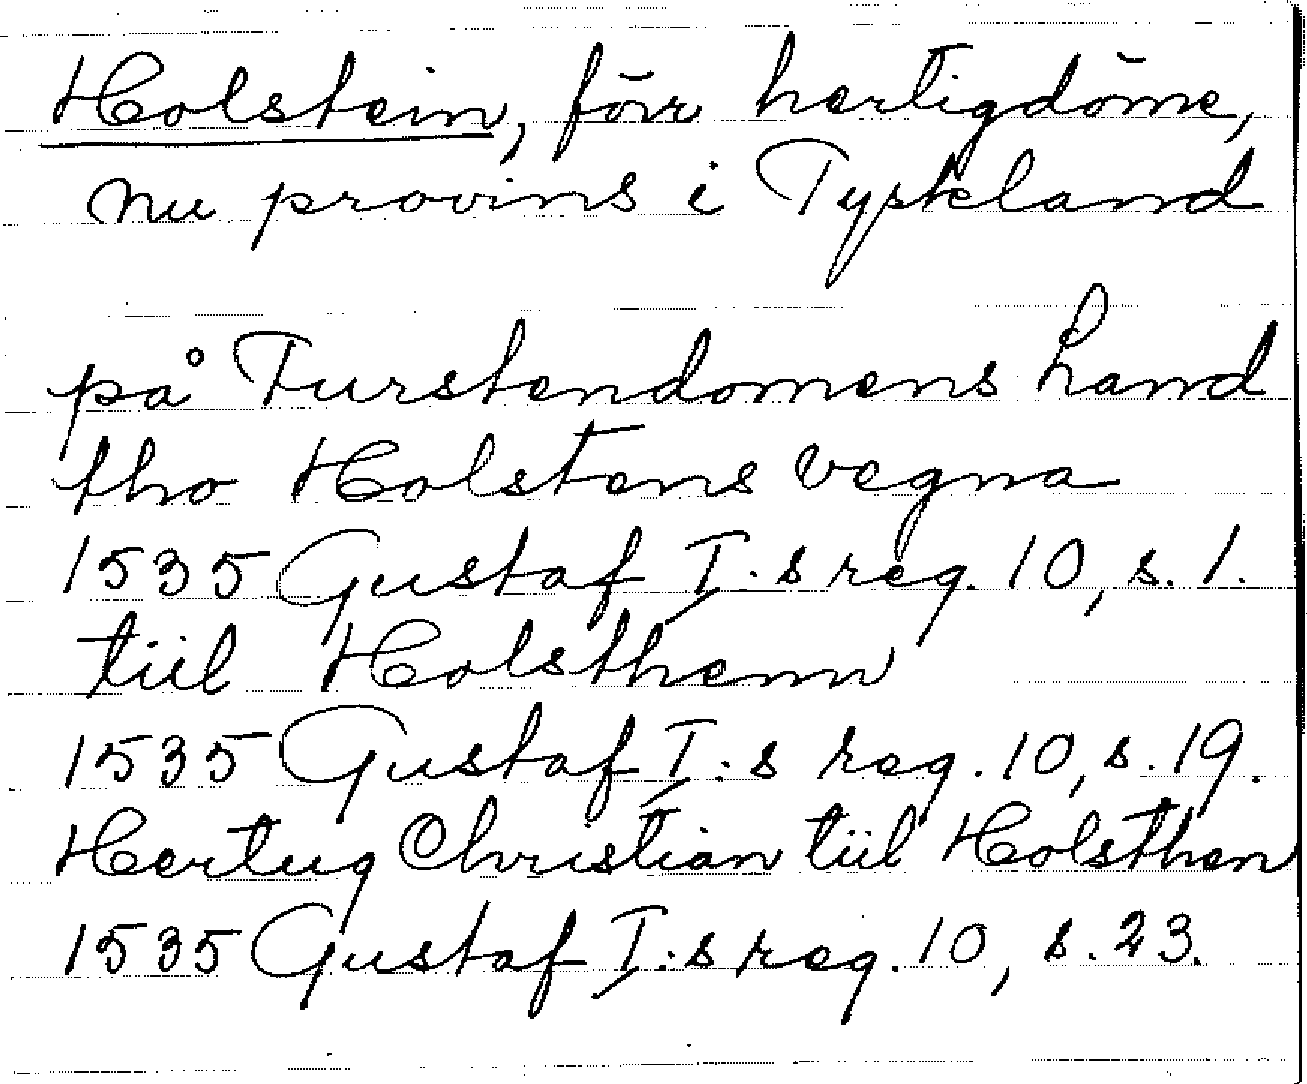 Holstein, förr hertigdöme,
nu provins i Tyskland
på Furstendomens hand
tho Holstens vegna
1535 Gustaf I:s reg. 10, s. 1.
tiil Holsthenn
1535 Gustaf I:s reg. 10, s. 19.
Hertug Christian tiil Holsthen
1535 Gustaf I:s reg. 10, s. 23.